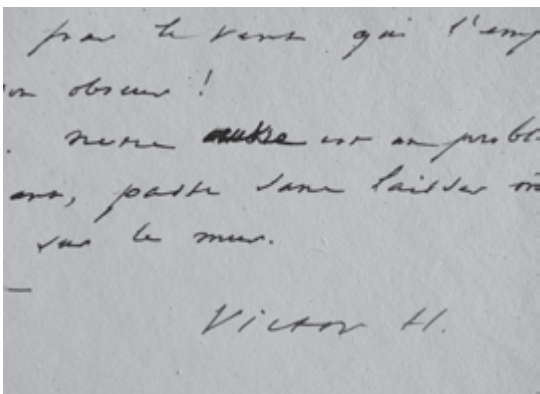 par le vent qui l'emp
on obscur !
notre est un probl
ant, passe sans laisser m
sur le mur.
Victor H.